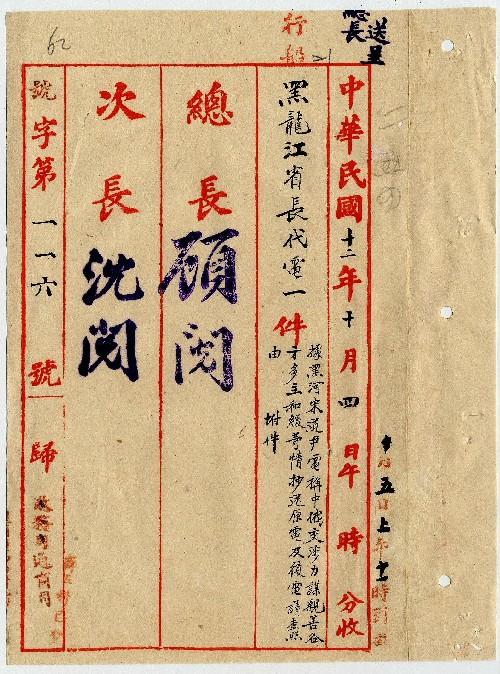 送呈
總長
中華民國十二年十月四日午時分收
黑龍江省長代電一件
據黑河宋道尹電稱中俄交涉力謀親善各
方多主和緩等情抄送原電及復電請查照
由 附件
總長
顧閱
次長
沈閱
號字第一一六號
歸
政務司通商司
五日上午十一時
62